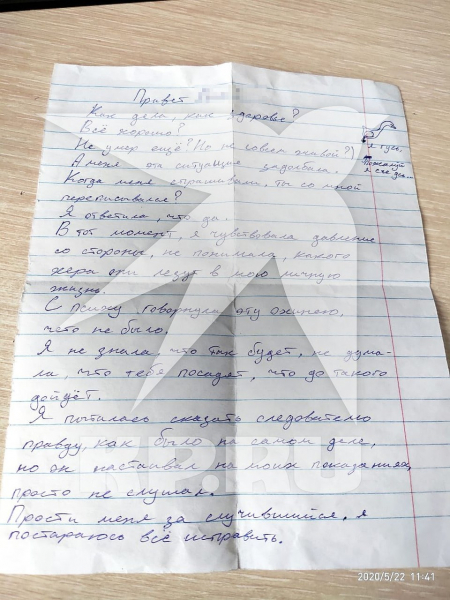 Привет
Как дела, как здоровье?
Всё хорошо?
Не умер ещё? Но не совсем живой?)
А меня эта ситуация задолбала.
Когда меня спрашивали, ты со мной
переписывался?
Я ответила, что да.
В тот момент, я чувствовала давление
со стороны, не понимала, какого
хера они лезут в мою личную
жизнь.
С психу говорнула эту охинею,
чего не было.
Я не знала, что так будет, не дума-
ла, что тебя посадят, что до такого
дойдёт.
Я пыталась сказать следователю
правду, как было на самом деле,
но он настаивал на моих показаниях,
просто не слушал.
Прости меня за случившийся, я
постараюсь всё исправить.
я гусь.
Пожалуй
я
KP.RU
2020/5/22 11:41